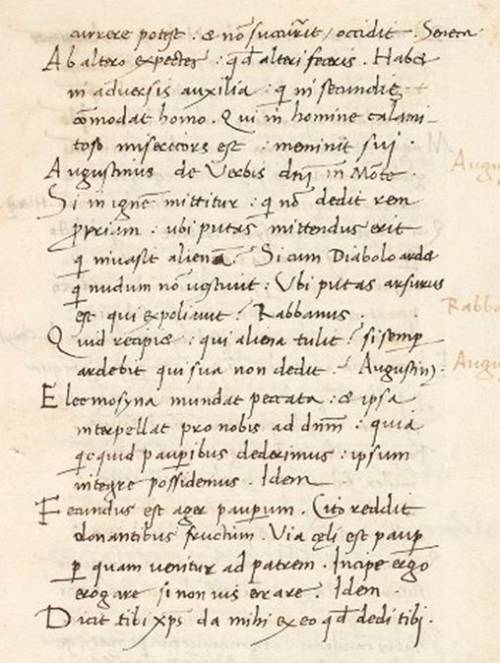 currere potest : & nõ succurit / occidit . Seneca
Ab altero expectes : qđ alteri feceris . Habet
in adversis auxilia : qi in secundis
cõmodat homo . Qui in homine calami
toso misericors est : meminit sui .
Augustinus de Verbis dñi in Mõte .
Si in ignẽ mittitur : qi nõ dedit rem
propriam : ubi putas mittendus erit
qi invasit alienã ? Si cum Diabolo ardet
qi nudum nõ vestivit : Ubi putas arsurus
est qui expoliavit ? Rabbanus .
Quid recipiet : qui aliena tulit ? si semp
ardebit qui sua non dedit ? Augustin9 .
Eleemosyna mundat peccata : & ipsa
interpellat pro nobis ad dñm : quia
qcquid pauperibus dederimus : ipsum
integre possidemus . Idem
Fecundus est ager pauperum . Cito reddit
donantibus fructum . Via cęli est paup
p quam venitur ad patrem . Incipe ergo
erogare si non vis errare . Idem .
Dicit tibi xps da mihi ex eo qđ dedi tibi .
Augu
Rabba
Augu